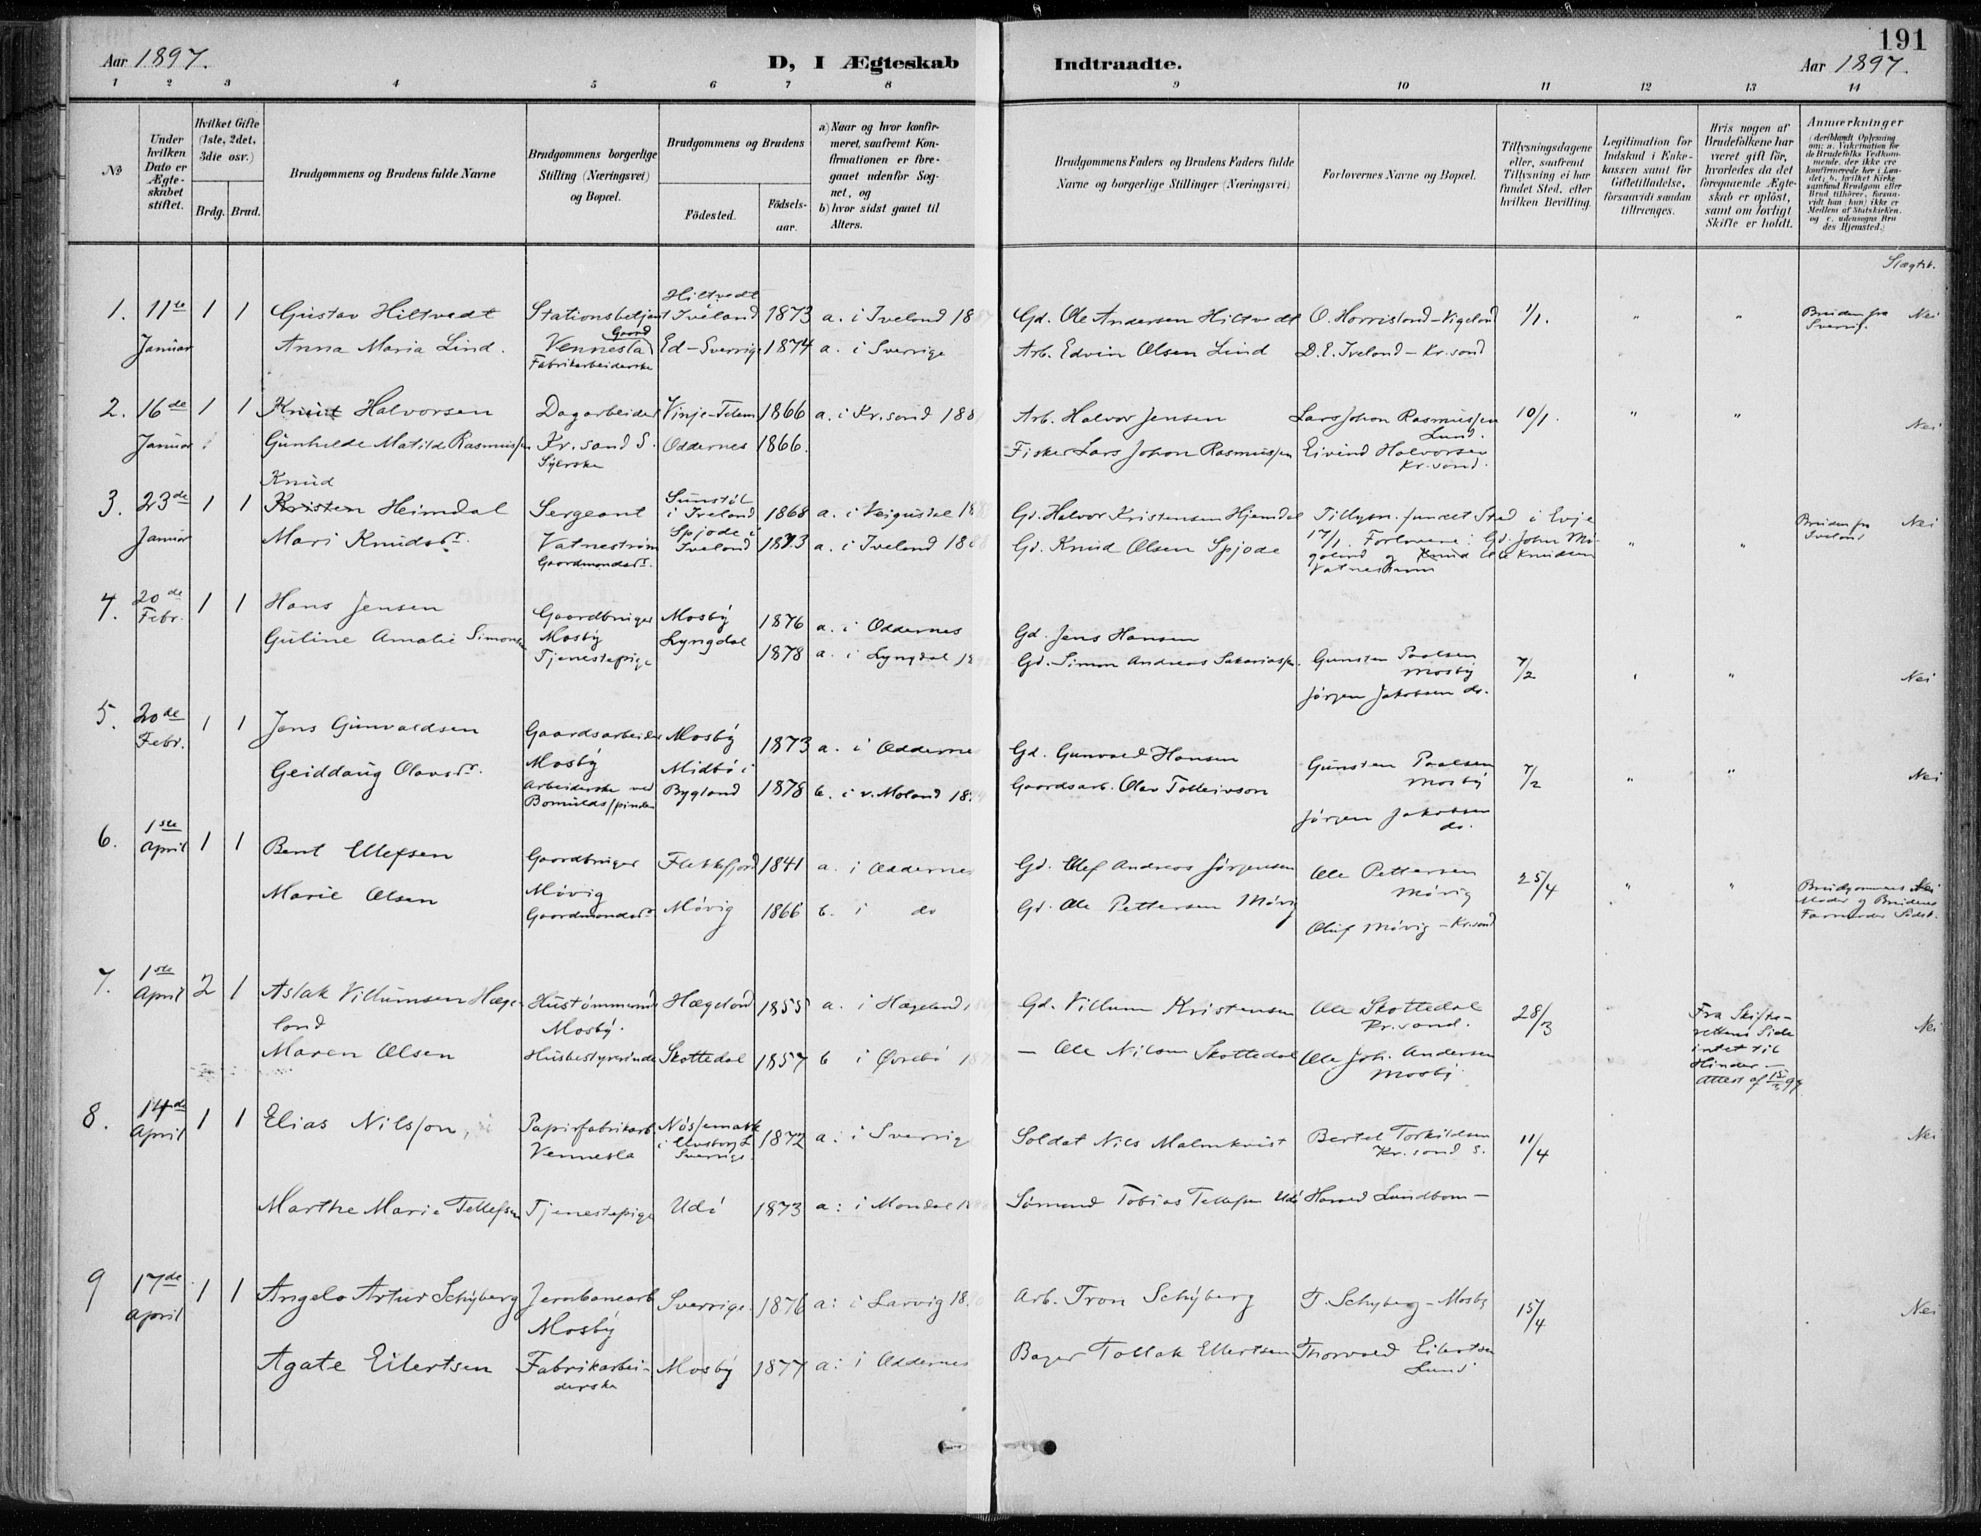 191
Aar 1897.
D, I Ægteskab Indtraadte.
Aar 1897.
1 2 3 4 5 6 7 8 9 10 11 12 13 14
No
Under hvilken Dato er Ægteskabet stiftet.
Hvilket Gifte (1ste, 2det, 3die osv.)
Brdg. Brud.
Brudgommens og Brudens fulde Navne
Brudgommens borgerlige Stilling (Næringsvei) og Bopæl.
Brudgommens og Brudens
Fødested.
Fødsels-aar.
a) Naar og hvor konfirmeret, saafremt Konfirmationen er foregaaet udenfor Sognet, og
b) hvor sidst gaaet til Alters.
Brudgommens Faders og Brudens Faders fulde Navne og borgerlige Stillinger (Næringsvei)
Forlovernes Navne og Bopæl.
Tillysningsdagene eller, saafremt Tillysning ei har fundet Sted, efter hvilken Bevilling.
Legitimation for Indskud i Enkekassen samt for Giftetilladelse, forsaavidt saadan tiltrænges.
Hvis nogen af Brudefolkene har været gift før, hvorledes da det foregaaende Ægteskab er opløst, samt om lovligt Skifte er holdt.
Anmærkninger
(deriblandt Oplysning om: a. Vakcination for de Brudefolks Vedkommende, der ikke ere konfirmerede her i Landet; b. hvilket Kirkesamfund Brudgom eller Brud tilhører, forsaavidt han (hun) ikke er Medlem af Statskirken, og c. udensogns Brudes Hjemsted.)
Slægtsk.
1. 11te 1 1 Gustav Hiltvedt Stationsbetjent Hiltvedt Iveland 1873 a. i Iveland 1887 Gd. Ole Andersen Hiltvedt O. Horrisland - Vigeland 1/1. " " Bruden fra Sverrig. Nei
Januar Anna Maria Lind. Gaard Vennesla Ed - Sverrige 1874 a. i Sverrige Arb. Edvin Olsen Lind D. E. Iveland - Kr.sand
Fabrikarbeiderske
2. 16de 1 1 Knut Halvorsen Dagarbeider Vinje - Telem 1866 a. i Kr.sand 188 Arb. Halvor Jensen Lars Johan Rasmussen Lund. 10/1. " " Nei
Januar Gunhilde Matilde Rasmussen Kr.sand S. Oddernes 1866. Fisker Lars Johan Rasmussen Eivind Halvorsen Kr.sand.
Syerske
Knud
3. 23de 1 1 Kristen Heimdal Sergeant Sunstøl i Iveland 1868 a. i Veigusdal 188 Gd. Halvor Kristensen Hjemdal Tillysn. fundet Sted i Evje Bruden fra Iveland Nei
Januar Mari Knudsdr. Vatnestrøm Spjode i Iveland 1873 a. i Iveland 1888 Gd. Knud Olsen Spjode 17/1. Forlovere: Gd. John
Gaardmandsdr. og Ole Knudsen " "
4. 20de Febr. 1 1 Hans Jensen Gaardbruger Mosby 1876 a. i Oddernes Gd. Jens Hansen
Guline Amalie Simonsen Mosby Lyngdal 1878 a. i Lyngdal 189 Gd. Simon Andreas Sakariassen Gunsten Paalsen Mosby 7/2 " " Nei
Tjenestepige Jørgen Jakobsen do.
5. 20de Febr. 1 1 Jens Gunvaldsen Gaardsarbeider Mosby 1873 a. i Oddernes Gd. Gunvald Hansen Gunsten Paalsen Mosby 7/2 " " Nei
Mosby
Geiddaug Olavsdr. Arbeiderske ved Bomuldsspinderi Midbø i Bygland 1878 b. i v. Moland 189 Gaardsarb. Olav Tolleivson Jørgen Jakobsen do.
6. 1ste April 1 1 Bent Ellefsen Gaardbruger Flekkefjord 1841 a. i Oddernes Gd. Ellef Andreas Jørgensen Ole Pettersen Møvig 25/4 " " Brudgommens Moder og Brudens Farmoder Nei
Møvig
Marie Olsen Gaardmandsdr. Møvig 1866 b. i do Gd. Ole Pettersen Møvig Oluf Møvig - Kr.sand
7. 1ste April 2 1 Aslak Villumsen Hægeland Hustømmermand Hægeland 1855 a. i Hægeland Gd. Villum Kristensen Ole Skottedal Kr.sand. 28/3 Fra Skifterettens Side intet til Hinder - Attest af 15/3 97 Nei
Mosby.
Maren Olsen Husbestyrerinde Skottedal 1857 b i Øvrebø 187 - Ole Nilsen Skottedal Ole Joh. Andersen Mosby
8. 14de April 1 1 Elias Nilsson, Papirfabrikarb. Nössemark i Elvsborg L. Sverrige. 1872 a: i Sverrig Soldat Nils Malmkvist Bertel Torkildsen Kr.sand S. 11/4 Nei
Vennesla
Marthe Marie Tellefsen Tjenestepige Udø 1873 a: i Mandal 18 Sømand Tobias Tellefsen Udø Harald Lundbom -
9 17de April 1 1 Angelo Artur Schyberg Jernbanearb. Sverrige. 1876 a: i Larvig 18 Arb. Tron Schyberg T. Schyberg - Mosby 15/4 Nei
Mosby
Agate Eilertsen Fabrikarbeiderske Mosby 1877 a: i Oddernes Bager Tollak Ellertsen Thorvald Eilertsen Lund